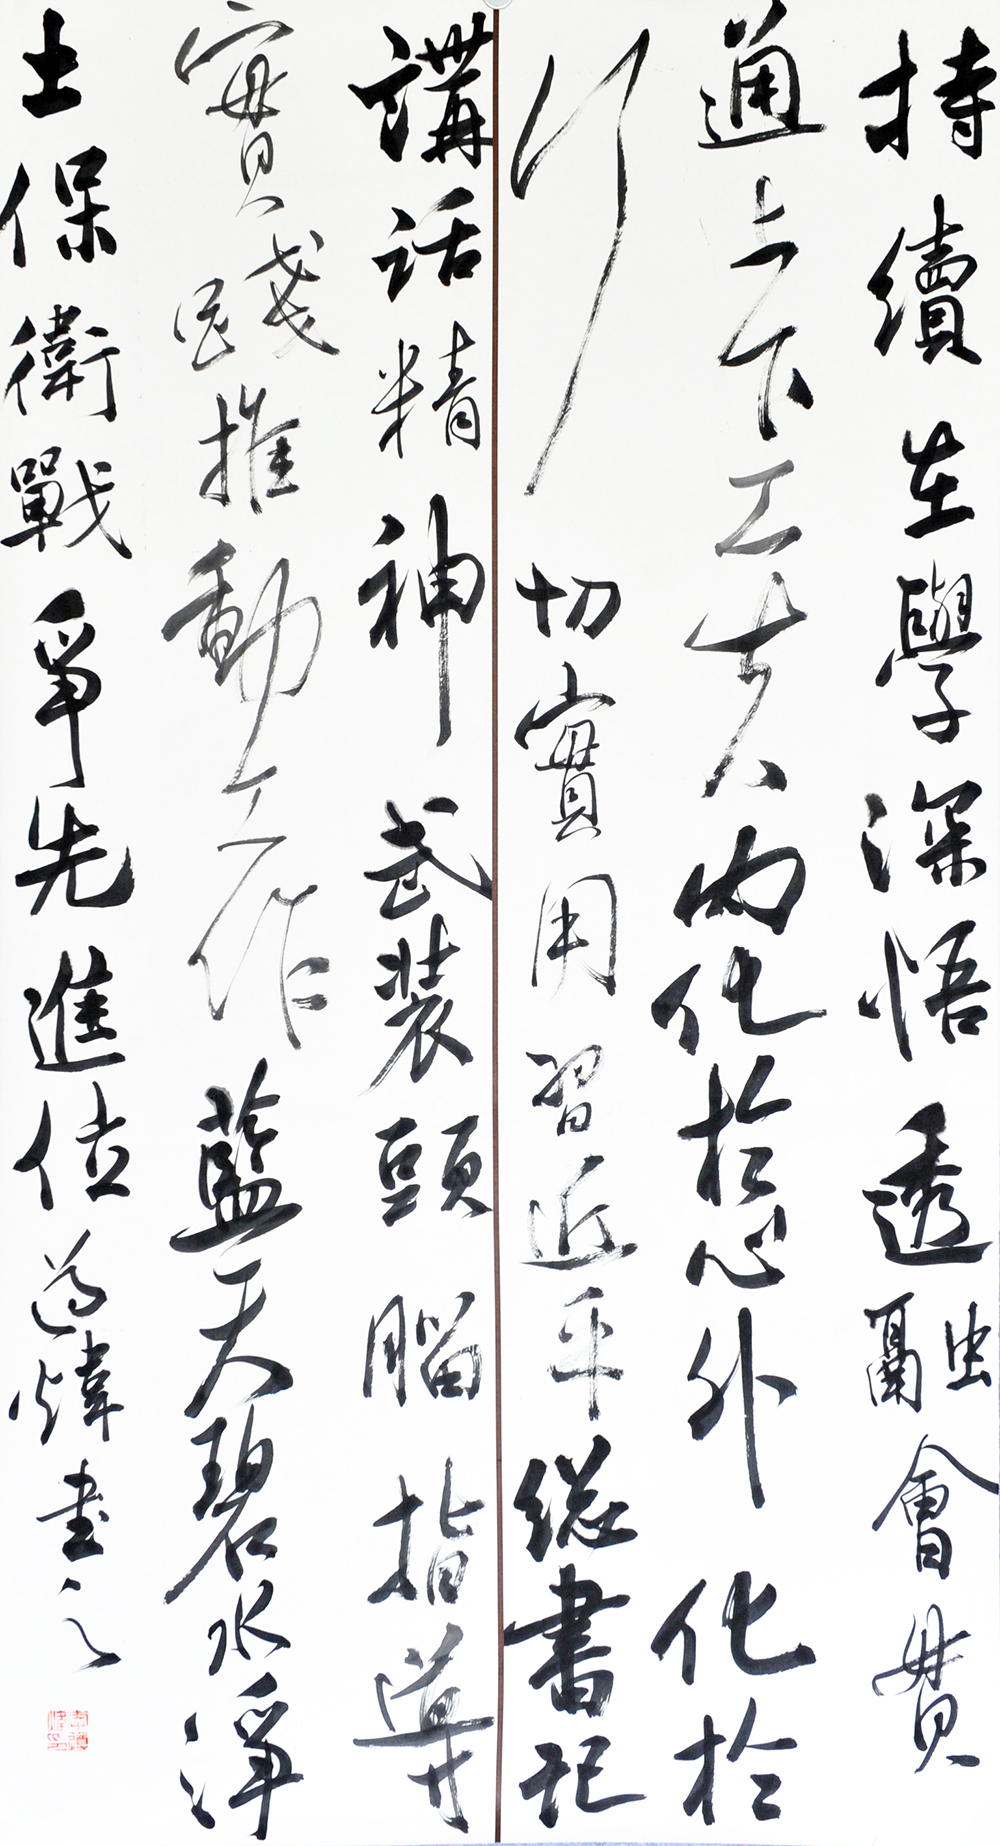 持續在學深悟透融會貫
通上下工夫内化於心外化於
行切實用習近平總書記
講話精神武装頭腦指導
實踐推動工作藍天碧水淨
土保衛戰爭先進位道煒書之